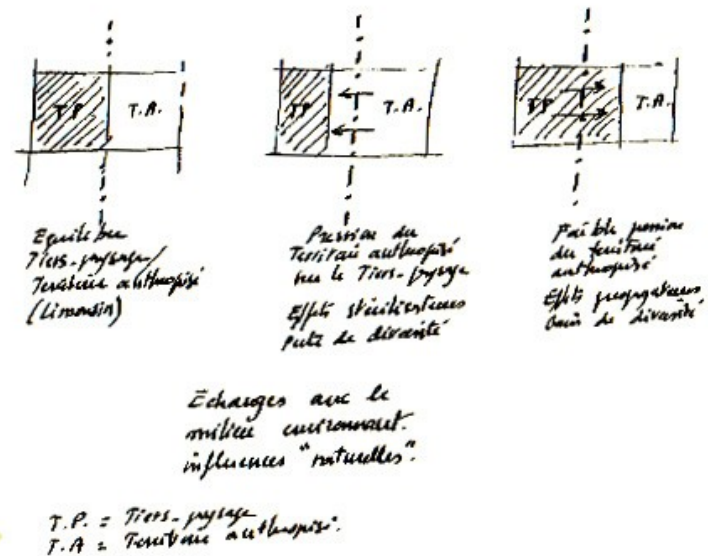 T.P.
T.A.
TP
T.A.
TP
T.A.
Equilibre
Tiers-paysage/
Territoire anthropisé
(Limousin)
Pression du
Territoire anthropisé
sur le Tiers-paysage
Effets stérilisateurs
Perte de diversité
Faible pression
du territoire
anthropisé
Effets propagateurs
Gain de diversité
Echanges avec le
milieu environnant.
influences "naturelles".
T.P. = Tiers-paysage
T.A = Territoire anthropisé.